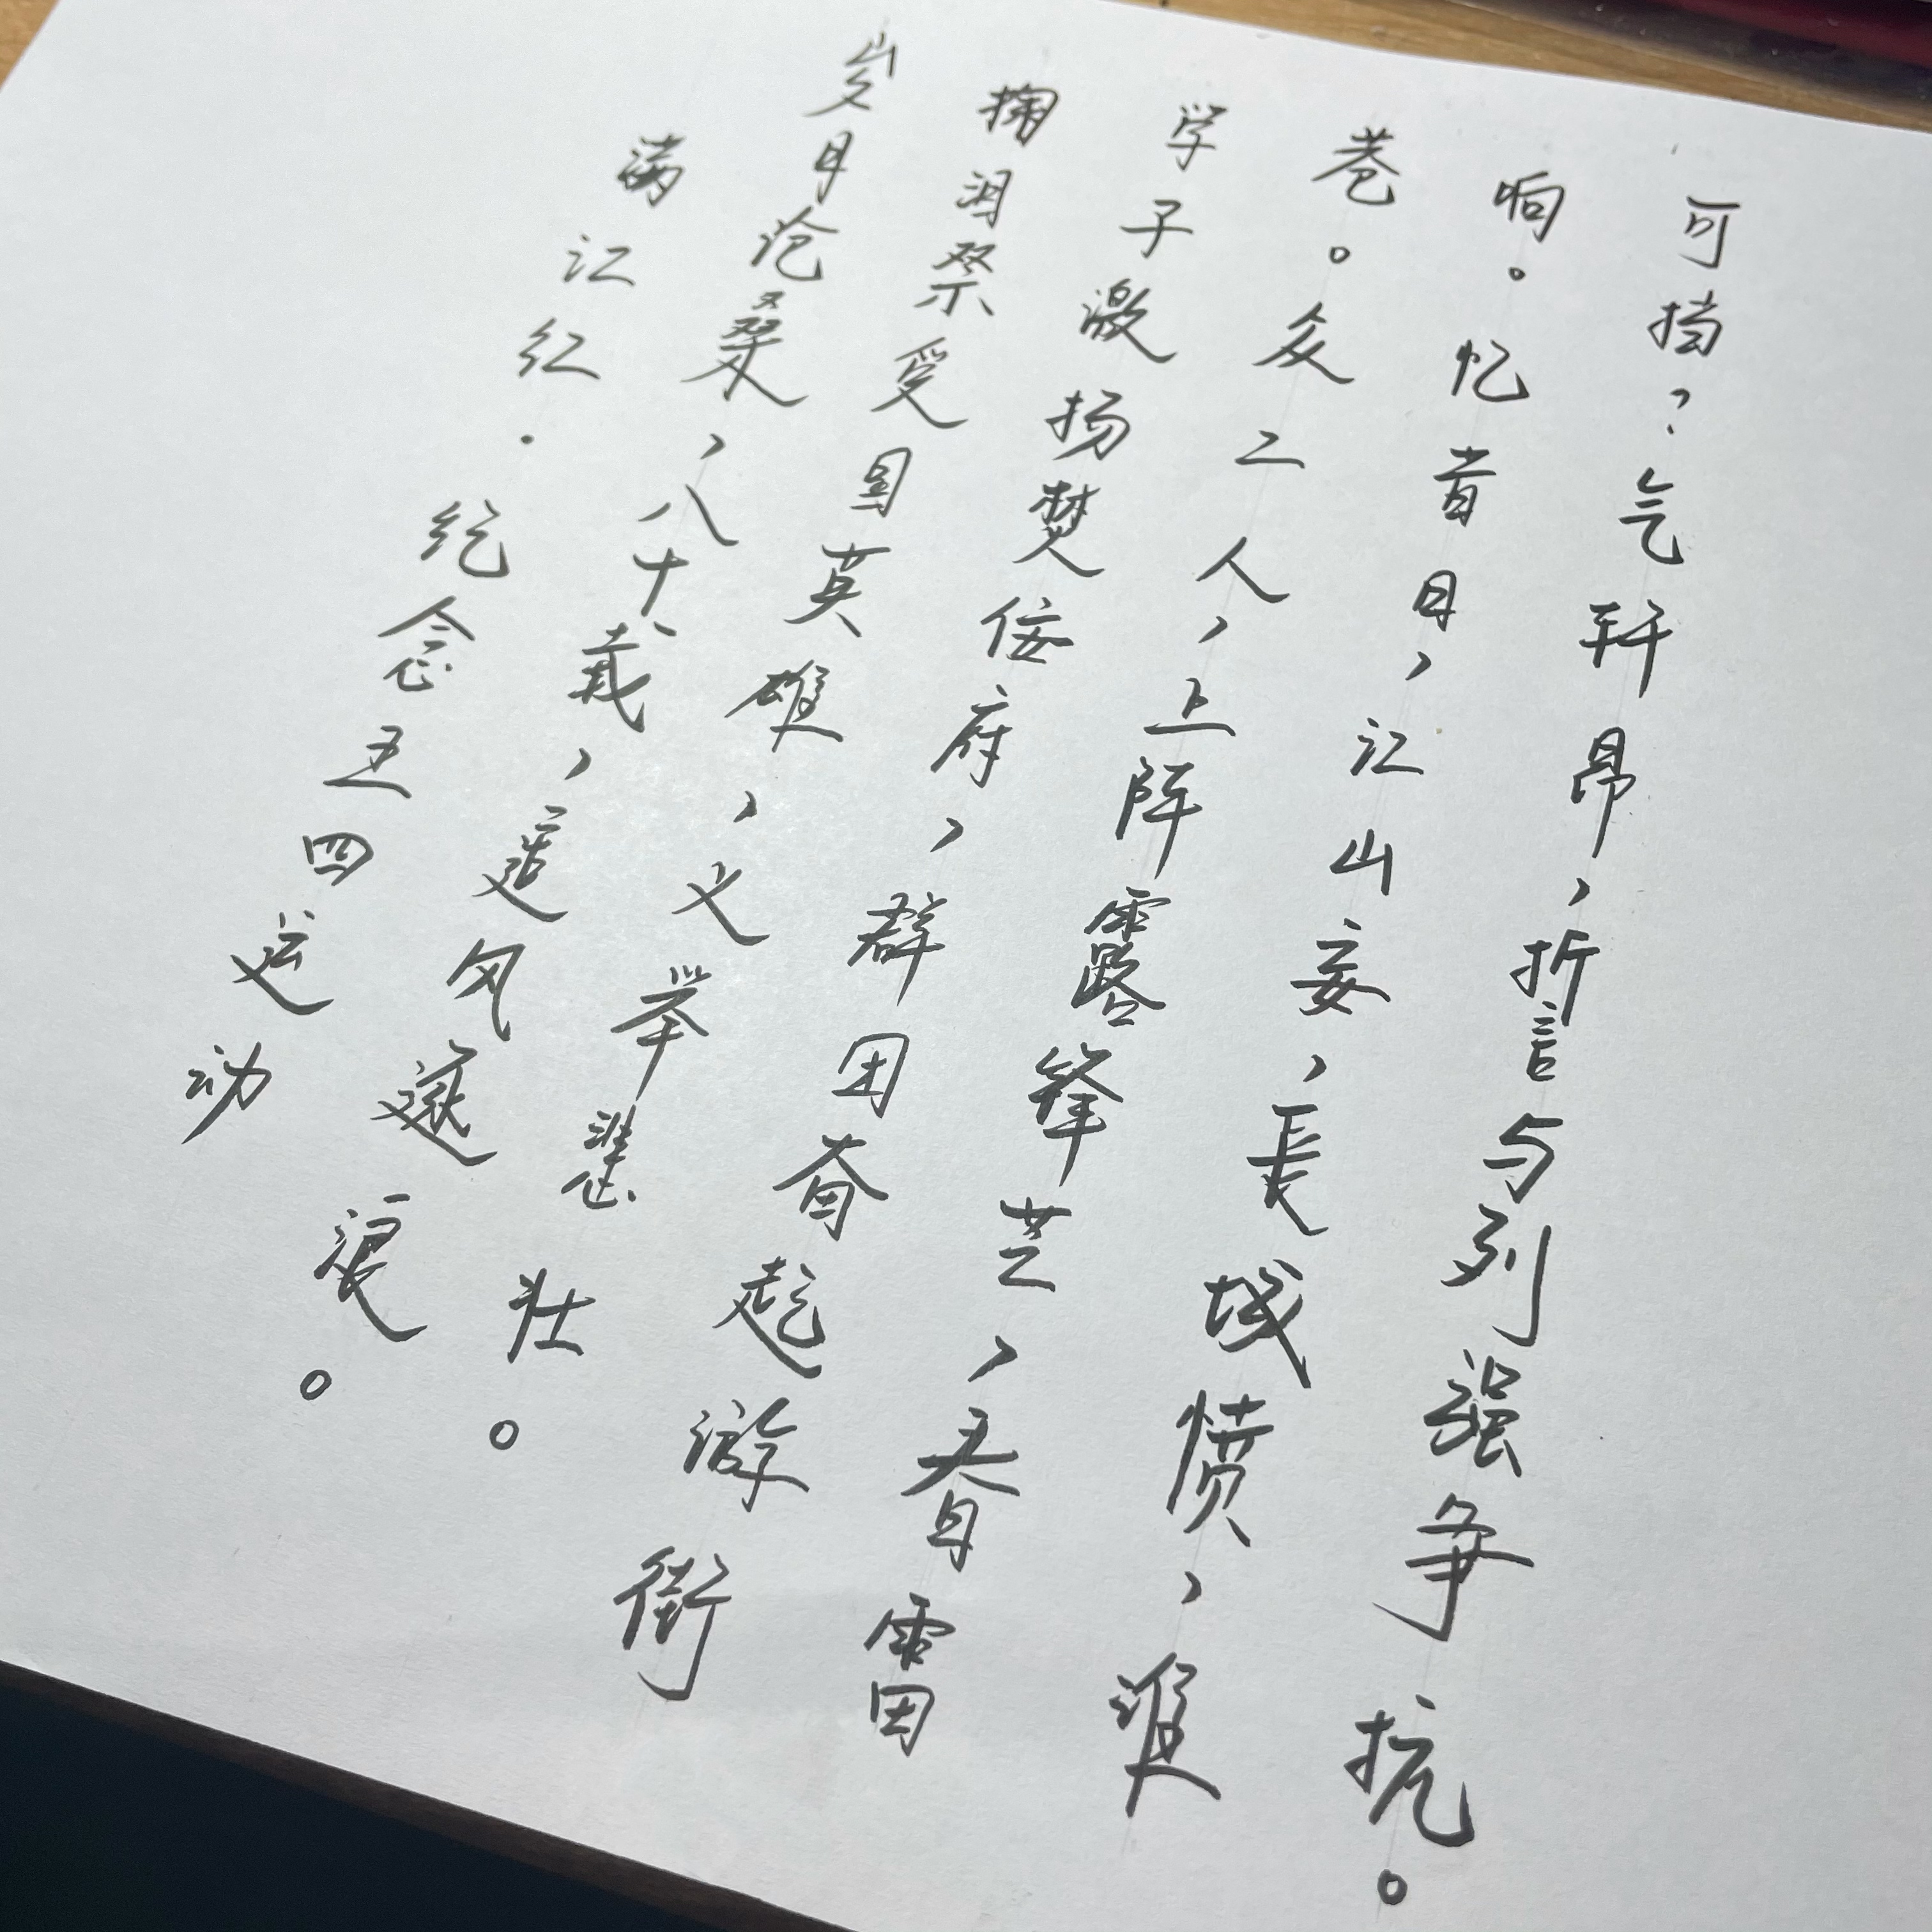 满江红·纪念五四运动
岁月沧桑,八十载,风邃浪。
掬泪祭爱国英雄,义举悲壮。
学子激扬焚佞府,群团奋起游街
巷。众工人,上阵露锋芒,春雷
响。忆昔日,江山妄,長城愤,谁
可挡?气轩昂,誓与列强争抗。